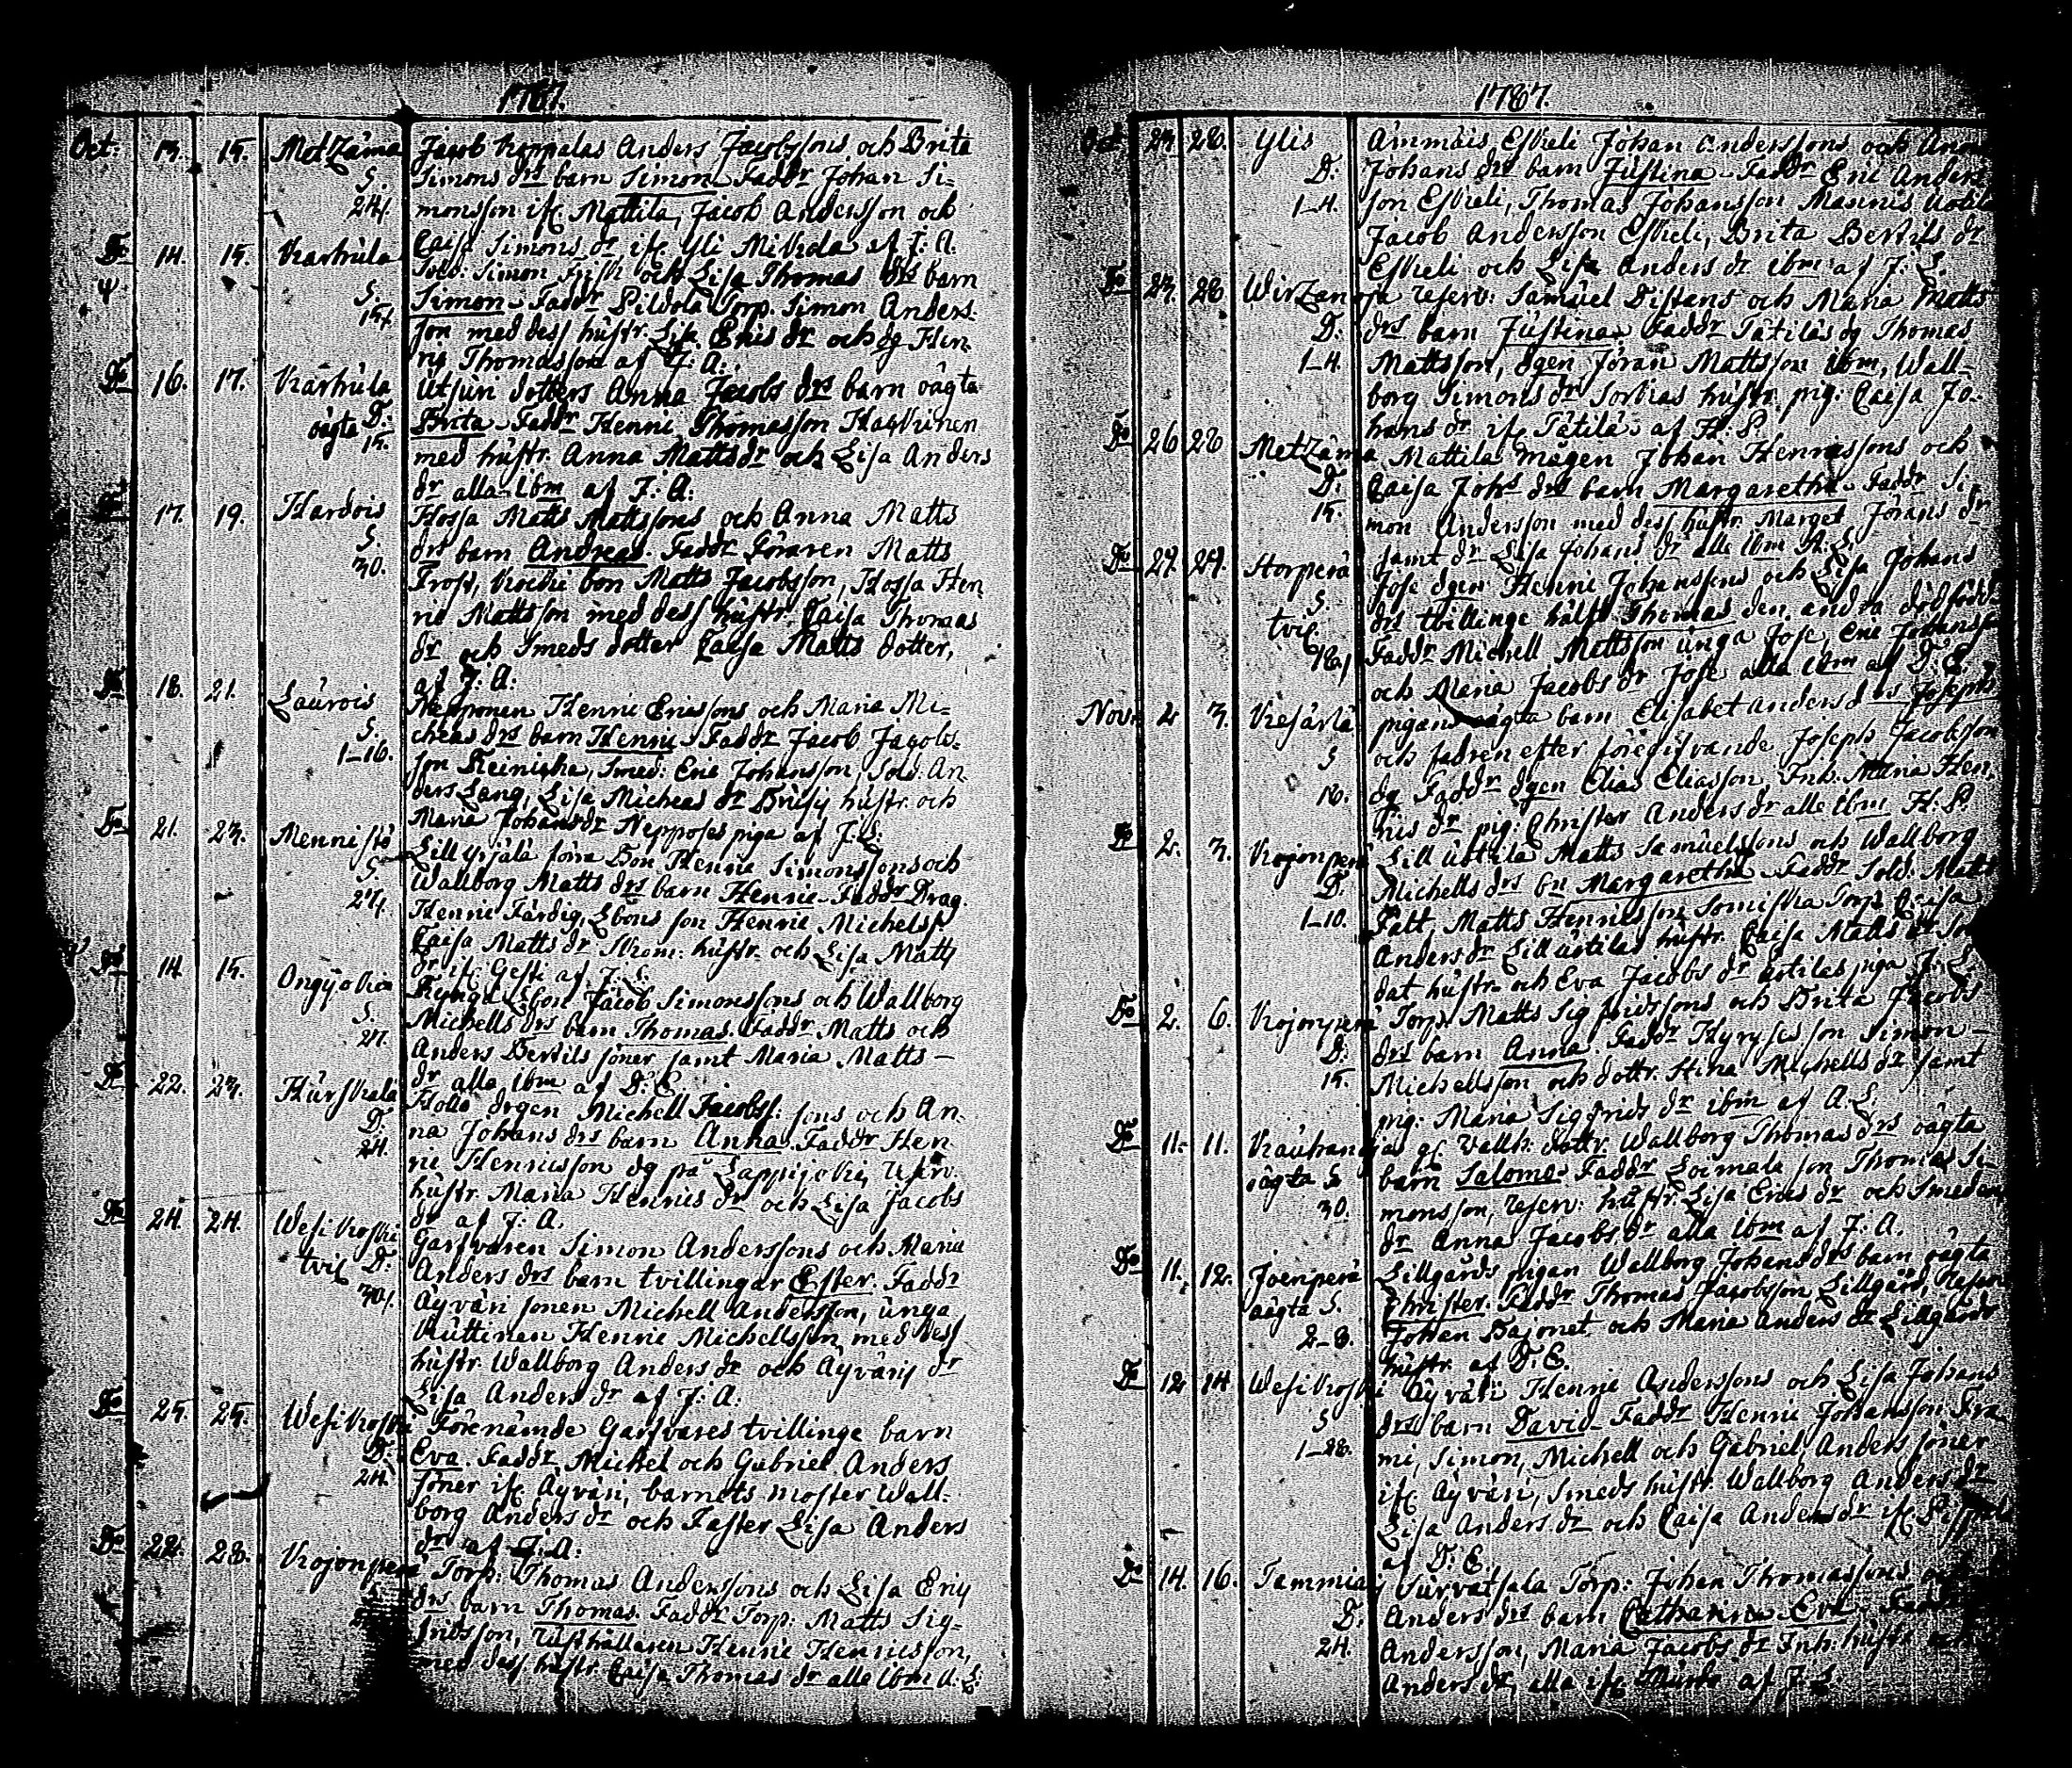 1787.
Oct: 13. 15. Metzämä Jacob Koppalas Anders Jacobssons och Brita
S. Simons drs barn Simon. Faddr Johan Si-
24. monsson ifr. Mattila, Jacob Andersson och
Caisa Simons dr ifr. Yli Mikola af J: A.
Do 14. 15. Karhula Sold: Simon Frisk och Lisa Thomas drs barn
S. Simon. Faddr Torp. Simon Anders-
son med dess hustr. Lisa Erics dr och dg Hen-
ric Thomasson af J: A.
Do 16. 17. Karhula Utjuri dotters Anna Jacobs drs barn oägta
oägta D. Brita. Faddr Henric Thomasson
med hustr. Anna Matts dr och Lisa Anders
dr alla ibm af J: A:
17. 19. Hardois Hossa Matts Mattssons och Anna Matts
S. drs barn Andreas. Faddr Göraren Matts
30. Fross, bon Matts Jacobsson, Hossa Hen-
ric Mattsson med dess hustr. Caisa Thomas
dr och Smeds dotter Caisa Matts dotter,
af J: A:
Do 18. 21. Laurois Nepponen Henric Ericssons och Maria Mi-
S. cheas drs barn Henric. Faddr Jacob Jacobs-
1-16. son Heiniska, Smed: Eric Johansson, Sold: An-
ders Lang, Lisa Micheas dr hustr. och
Maria Johans dr piga af J: L:
Do 21. 23. Mennistö Lill Yrjälä förra Bon Henric Simonssons och
S. Wallborg Matts drs barn Henric. Faddr Drag.
27. Henric Färdig, Lbons son Henric Michelss.
Caisa Matts dr hustr. och Lisa Matts
dr ifr. af J: L.
14. 15. Ongijoki Lbon Jacob Simonssons och Wallborg
S. Michells drs barn Thomas. Faddr Matts och
27. Anders Bertils söner samt Maria Matts
dr alla ibm af D: E.
Do 22. 23. Hurskala Hollo drgen Michell Jacobss: sons och An-
D. na Johans drs barn Anna. Faddr Hen-
24. ric Henricsson dg på Lappijoki, Reserv.
hustr. Maria Henrics dr och Lisa Jacobs
dr af J: A.
Do 24. 24. Wesikoski Garfvaren Simon Anderssons och Maria
tvil D. Anders drs barn tvillingar Ester. Faddr
30. Äyväri sonen Michell Andersson, unga
Kuttinen Henric Michellsson med dess
hustr. Wallborg Anders dr och Äyväris dr
Lisa Anders dr af J: A.
Do 25. 25. Wesikoski Förenämde Garfvares tvillinge barn
D. Eva. Faddr Michel och Gabriel Anders
24. söner ifr. Äyväri, barnets moster Wall-
borg Anders dr och Faster Lisa Anders
dr af J: A:
Do 22. 28. Kojonperä Torp: Thomas Anderssons och Lisa Erics
drs barn Thomas. Faddr Torp: Matts Sig-
fridsson, Rusthållaren Henric Henricsson,
med dess hustr. Caisa Thomas dr alle ibm A: L:
1787.
Oct 27. 28. Ylis Ammäis Eskieli Johan Anderssons och Anna
D. Johans drs barn Justina. Faddr Eric Anders
1-4. son Eskieli, Thomas Johansson
Jacob Andersson Eskieli, Brita Bertils dr
Eskieli och Lisa Anders dr ibm af J: L.
Do 27. 28 Wirzanoja Reserv: Samuel Distans och Maria Matts
D. drs barn Justina. Faddr Tätiläs dg Thomas
1-4. Mattsson, dgen Jöran Mattsson ibm, Wall-
borg Simons dr hustr. pig: Caisa Jo-
hans dr ifr. Tätilä af H: P.
Do 26 28 Metzämä Mattila mågen Johan Henricssons och
D. Caisa Johs drs barn Margaretha. Faddr Si-
15. mon Andersson med dess hustr. Marget Jörans dr
samt dr Lisa Johans dr alle ibm A: L.
Do 27. 29. Horperä Jose dgen Henric Johanssons och Lisa Johans
S drs tvillinge hälft Thomas den andra dödfödd
tvil. Faddr Michell Mattsson unga Jose, Eric Johanss.
och Maria Jacobs dr Jose alla ibm af D: E.
Novr 2 3. Kiesärlä pigans oägta barn Elisabet Anders drs Josephs
S och fadren efter föregifvande Joseph Jacobsson
18. dg Faddr dgen Elias Eliasson Inh. Maria Hen-
rics dr pig: Christer Anders dr alle ibm H: P.
Do 2. 3. Kojonperä Lill Uotila Matts Samuelssons och Wallborg
D. Michells drs bn Margaretha. Faddr Sold: Matts
1-10. Fatt, Matts Henricsson Torp. Caisa
Anders dr Lill uotilas hustr. Caisa Matts dr Sol-
dat hustr. och Eva Jacobs dr uotilas piga J: L.
Do 2. 6. Kojonperä Torp. Matts Sigfridssons och Brita Jacobs
D. drs barn Anna. Faddr son Simon
15. Michellsson och dottr. Stina Michells dr samt
pig: Maria Sigfrids dr ibm af A: L:
Do 11. 11. Kauhanojas dottr. Wallborg Thomas drs oägta
oägta S. barn Salomo. Faddr Loimala son Thomas Si-
30. monsson, Reserv: hustr. Lisa Erics dr och Smedens
dr Anna Jacobs dr alla ibm af J: A.
Do 11. 12. Joenperä Lillgårds pigan Wallborg Johans drs barn oägta
oägta S. Christer. Faddr Thomas Jacobsson Lillgård,
2-8. Johan Bajonet och Maria Anders dr Lillgårds
hustr. af D: E.
Do 12 14 Wesikoski Äyväri Henric Anderssons och Lisa Johans
S drs barn David. Faddr Henric Johansson Fra-
1-28. mi, Simon, Michell och Gabriel Anders söner
ifr. Äyväri, Smeds hustr. Wallborg Anders dr
Lisa Anders dr och Caisa Anders dr ifr.
af D: E
Do 14. 16. Tammiais Survatsala Torp: Johan Thomassons
D. Anders drs barn Catharina Eva. Faddr
24. Andersson, Maria Jacobs dr Inh: hustr.
Anders dr, alla ifr. af J: L.